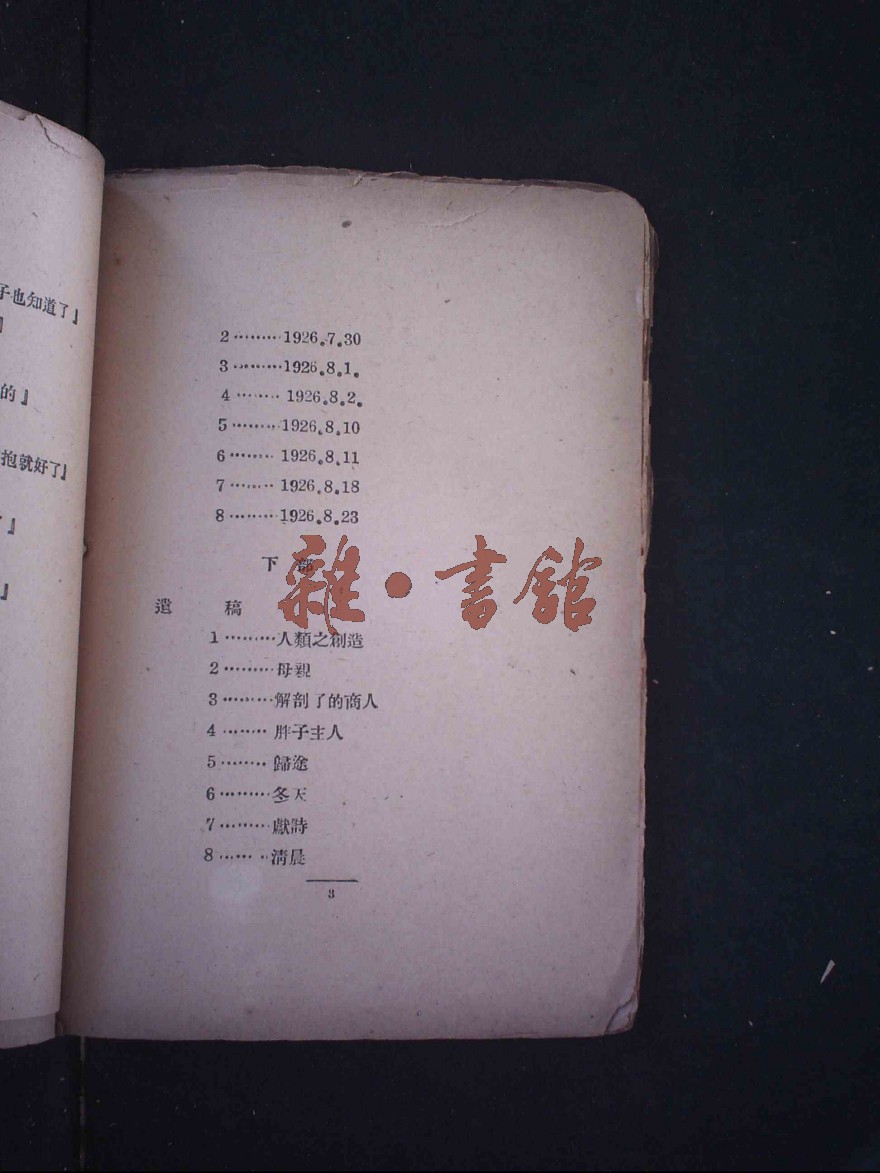 子也知道了』
』
的』
抱就好了』
』
』
2………1926.7.30
3………1926.8.1.
4……… 1926.8.2.
5………1926.8.10
6……… 1926.8.11
7……… 1926.8.18
8………1926.8.23
下 部
雜·書舘
遺 稿
1………人類之創造
2………母親
3………解剖了的商人
4……… 胖子主人
5……… 歸途
6………冬天
7………獻詩
8………清晨
3